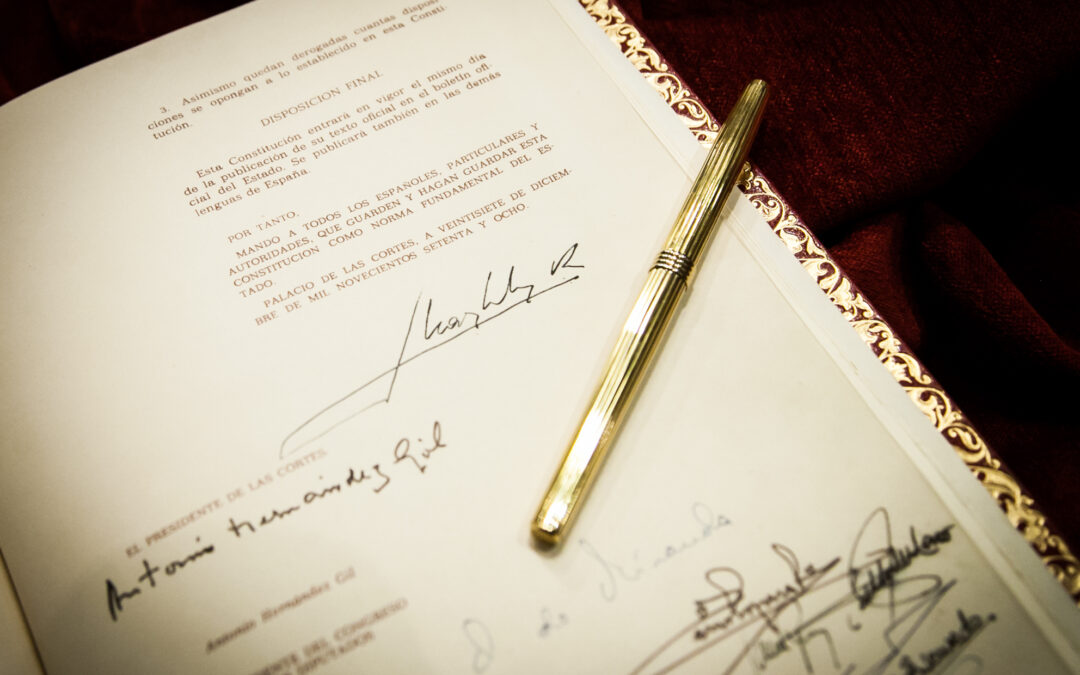 3. Asimismo quedan derogadas cuantas disposi-
ciones se opongan a lo establecido en esta Consti-
tución.
DISPOSICION FINAL
Esta Constitución entrará en vigor el mismo día
de la publicación de su texto oficial en el boletín ofi-
cial del Estado. Se publicará también en las demás
lenguas de España.
POR TANTO,
MANDO A TODOS LOS ESPAÑOLES, PARTICULARES Y
AUTORIDADES, QUE GUARDEN Y HAGAN GUARDAR ESTA
CONSTITUCION COMO NORMA FUNDAMENTAL DEL ES-
TADO.
PALACIO DE LAS CORTES, A VEINTISIETE DE DICIEM-
BRE DE MIL NOVECIENTOS SETENTA Y OCHO.
EL PRESIDENTE DE LAS CORTES
Antonio Hernández Gil
Antonio Hernández Gil
DENTE DEL CONGRESO
DIPUTADOS